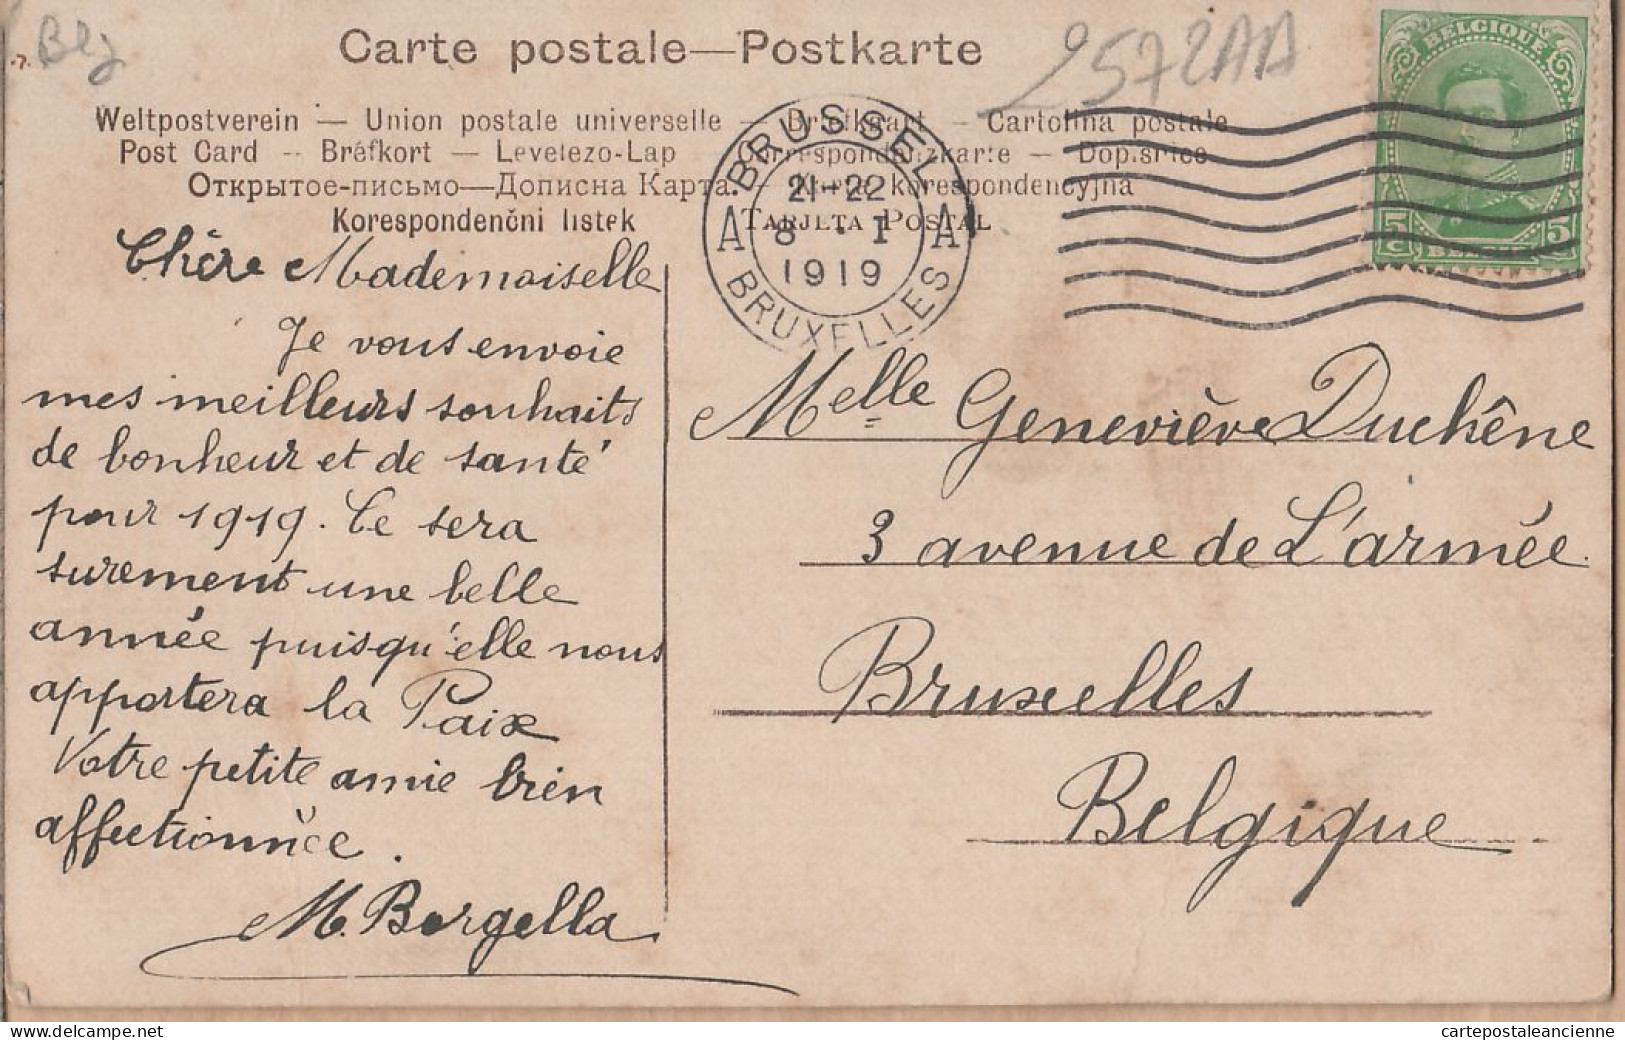 Blg
2572AA
Carte postale—Postkarte
Weltpostverein — Union postale universelle — Briefkaart — Cartolina postale
Post Card — Bréfkort — Levelezo-Lap — Correspondenzkarte — Dopisnice
Открытое-письмо—Дописна Карта — Karta korespondencyjna
Korespondenčni listek TARJETA POSTAL
BELGIQUE
5 C 5
BELGIË
BRUSSEL
21-22
A 8 - I A
1919
BRUXELLES
Chère Mademoiselle
Je vous envoie
mes meilleurs souhaits
de bonheur et de santé
pour 1919. Ce sera
surement une belle
année puisqu'elle nous
apportera la Paix
Votre petite amie bien
affectionnée.
M. Borgella
Melle Geneviève Duchêne
3 avenue de L'armée.
Bruxelles
Belgique
cartepostaleancienne